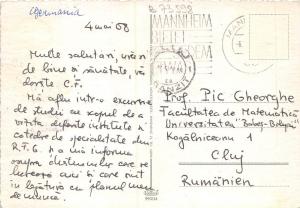 Germania
4 mai 68
Multe salutări, urări
de bine și sănătate, vă
dorește C.F.
Mă aflu într-o excursie
de studii cu scopul de a
vizita diferite institute și
catedre de specialitate din
R.F.G. și a mă informa
asupra sistemului care se
lucrează aici și care sînt
în legătură cu planul meu
de muncă.
MANNHEIM
BIETET
CLUJ
Prof. Pic Gheorghe
Facultatea de Matematică
Universitatea "Babeș-Bolyai"
Kogălniceanu 1
Cluj
Rumänien